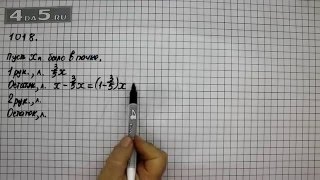 4DA5.RU
1018.
Пусть x л. было в пачке.
1 рук., л. 3/5x
Остаток, л. x - 3/5x = (1-3/5)x
2 рук., л.
Остаток, л.